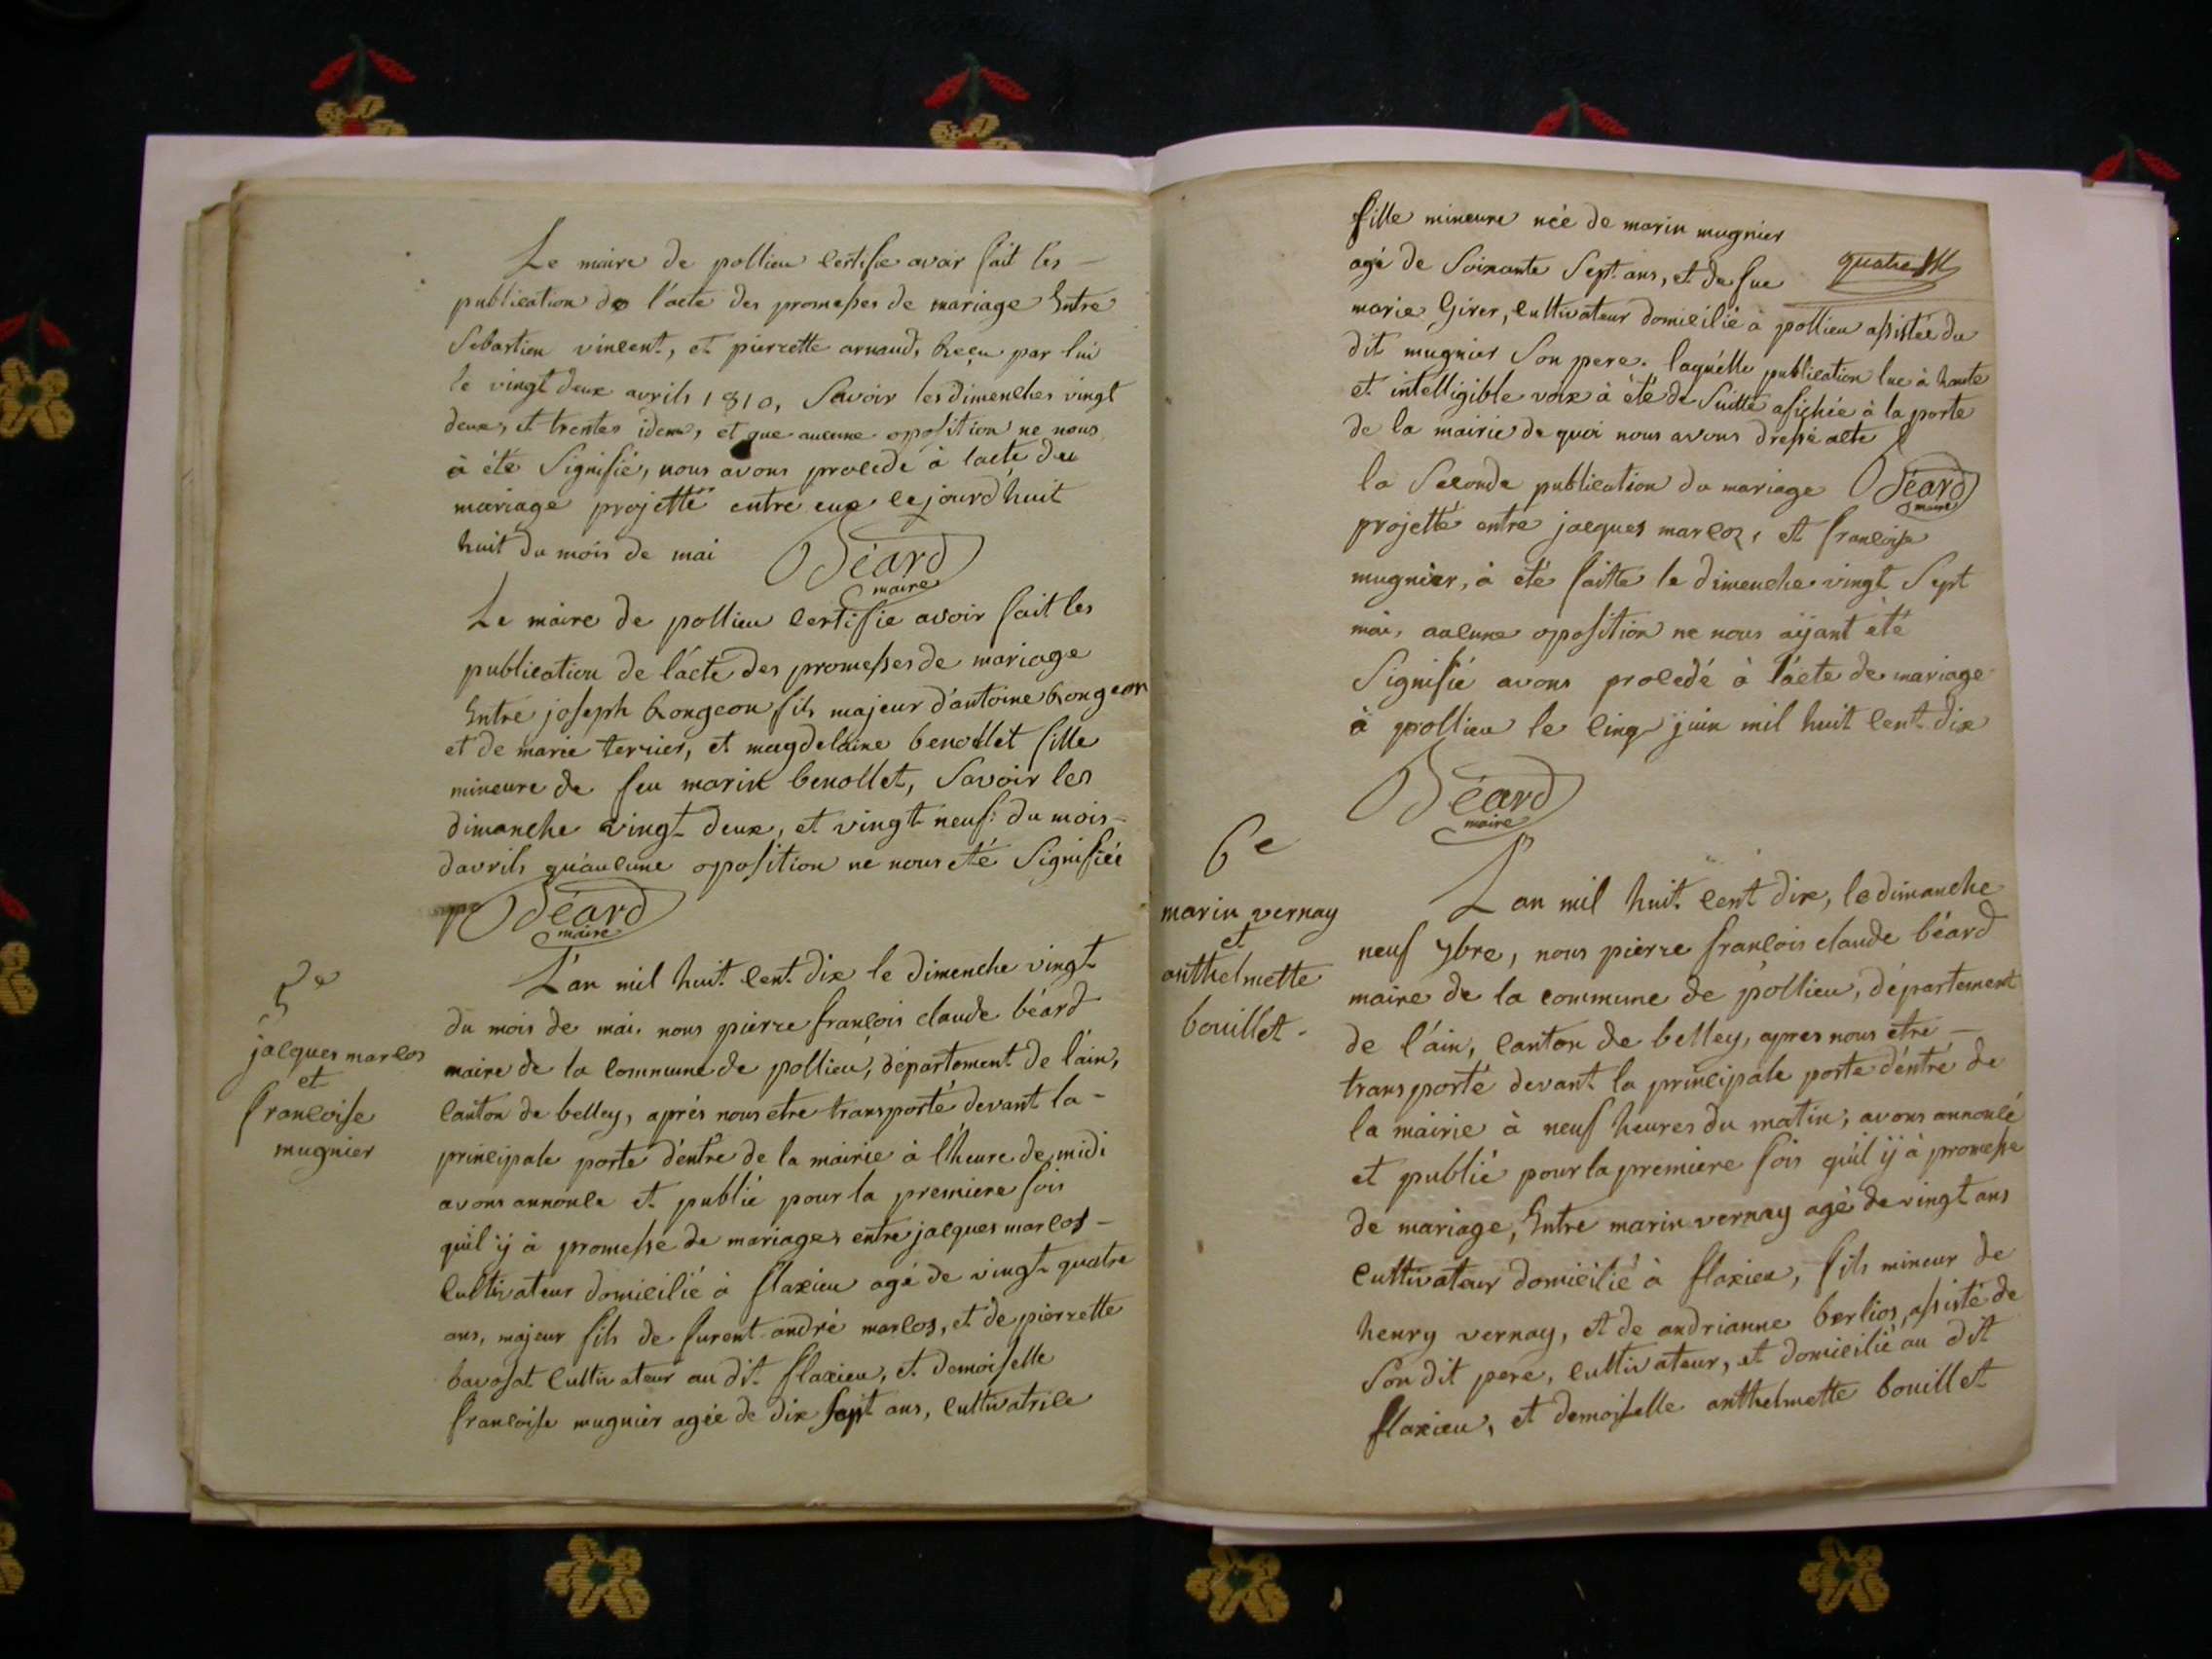 Le maire de pollieu certifie avoir fait les
publication de l'acte des promesses de mariage Entre
Sebastien vincent, et pierrette arnaud, Reçu par lui
le vingt deux avrils 1810, Savoir les dimenches vingt
deux, et trentes idem, et que aucune oposition ne nous
à été Signifié, nous avons procedé à lacte du
mariage projetté entre eux cejourd'huit
huit du mois de mai Béard
maire
Le maire de pollieu certifie avoir fait les
publication de l'acte des promesses de mariage
Entre joseph Rongeon fils majeur d'antoine Rongeon
et de marie terrier, et magdelaine benollet fille
mineure de feu marin benollet, Savoir les
dimanche vingt deux, et vingt neuf du mois
davrils qu'aucune oposition ne nous été Signifiée
Béard
maire
5e
jacques marlos
et
francoise
mugnier
L'an mil huit cent dix le dimenche vingt
du mois de mai, nous pierre françois claude béard
maire de la commune de pollieu, département de l'ain,
canton de belley, aprés nous etre transporté devant la
principale porte d'entre de la mairie à l'heure de midi
avons annonce et publié pour la premiere fois
qu'il ÿ à promesse de mariages entre jacques marlos
cultivateur domicilié à flaxieu agé de vingt quatre
ans, majeur fils de furent andré marlos, et de pierrette
bavosat cultivateur au dit flaxieu, et demoiselle
francoise mugnier agée de dix sept ans, cultivatrice
fille mineure née de marin mugnier
agé de Soixante Sept ans, et de fue
quatre
marie Girer, cultivateur domicilié à pollieu assistée du
dit mugnier Son pere. laquélle publication lue à haute
et intelligible voix à été de Suitte afichée à la porte
de la mairie de quoi nous avons dressé acte
Béard
maire
la Seconde publication du mariage
projetté entre jacques marloz, et francoise
mugnier, à eté faitte le dimenche vingt Sept
mai, aucune oposition ne nous aÿant été
Signifié avons procedé à l'acte de mariage
à pollieu le cinq juin mil huit cent dix
Béard
maire
6e
marin vernay
et
anthelmette
bouillet.
L'an mil huit cent dix, le dimanche
neuf 7bre, nous pierre françois claude béard
maire de la commune de pollieu, département
de l'ain, canton de belley, apres nous etre
transporté devant la principale porte d'entré de
la mairie à neuf heures du matin, avons annoncé
et publié pour la premiere fois qu'il ÿ à promesse
de mariage, Entre marin vernay agé de vingt ans
cultivateur domicilié à flaxieu, fils mineur de
henry vernay, et de andrianne berlios, assisté de
Son dit pere, cultivateur, et domicilié au dit
flaxieu, et demoiselle anthelmette bouillet